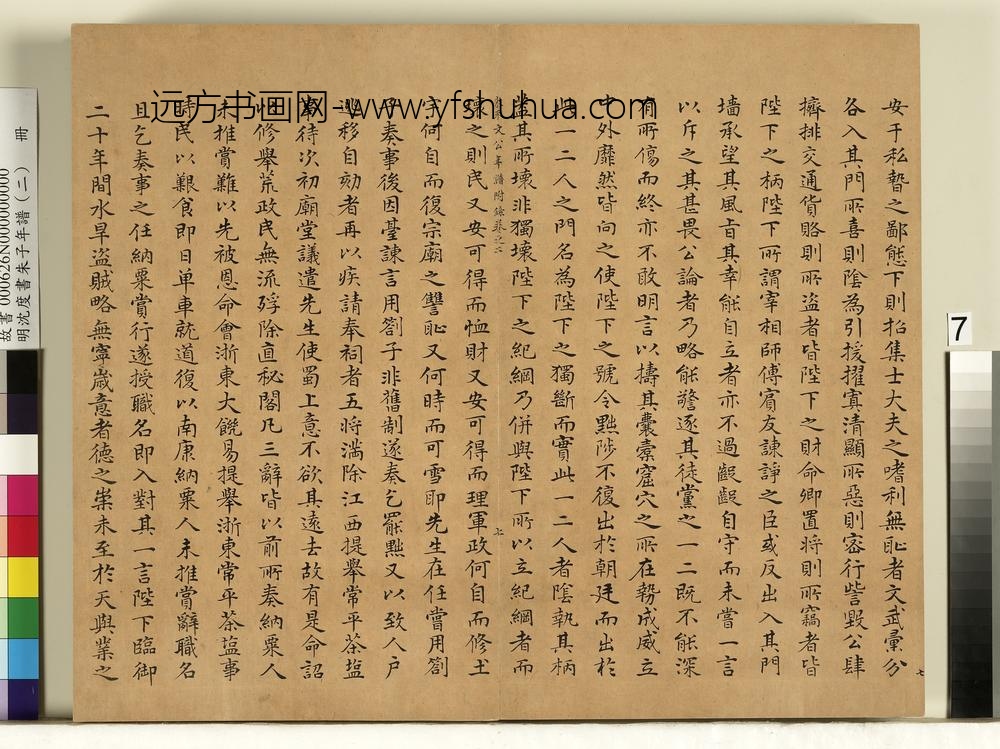 安于私暬之鄙態下則招集士大夫之嗜利無恥者文武彙分
各入其門所喜則陰為引援擢寘清顯所惡則密行訾毀公肆
擠排交通貨賂則所盜者皆陛下之財命卿置將則所竊者皆
陛下之柄陛下所謂宰相師傅賓友諫諍之臣或反出入其門
墻承望其風旨其幸能自立者亦不過齪齪自守而未嘗一言
以斥之其甚畏公論者乃略能警逐其徒黨之一二既不能深
有所傷而終亦不敢明言以擣其囊橐窟穴之所在勢成威立
中外靡然皆向之使陛下之號令黜陟不復出於朝廷而出於
此一二人之門名為陛下之獨斷而實此一二人者陰執其柄
蓋其所壞非獨壞陛下之紀綱乃併與陛下所以立紀綱者而
文公年譜附錄卷之二
七
壞之則民又安可得而恤財又安可得而理軍政何自而修土
宇何自而復宗廟之讐恥又何時而可雪即先生在任嘗用劄
子奏事後因臺諫言用劄子非舊制遂奏乞罷黜又以致人戶
逃移自劾者再以疾請奉祠者五將滿除江西提舉常平茶鹽
待次初廟堂議遣先生使蜀上意不欲其遠去故有是命詔
以修舉荒政民無流殍除直秘閣凡三辭皆以前所奏納粟人
未推賞難以先被恩命會浙東大饑易提舉浙東常平茶鹽事
時民以艱食即日單車就道復以南康納粟人未推賞辭職名
且乞奏事之任納粟賞行遂授職名即入對其一言陛下臨御
二十年間水旱盜賊略無寧歲意者德之崇未至於天與業之
七
远方书画网-www.yfshuhua.com
故書 000626N000000000
明沈度書朱子年譜(二) 冊
7